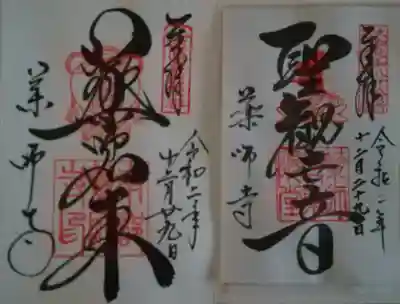 奉拝
令和二年
十二月二十九日
聖観世音
薬師寺
奉拝
令和二年
十二月廿九日
薬師如来
薬師寺